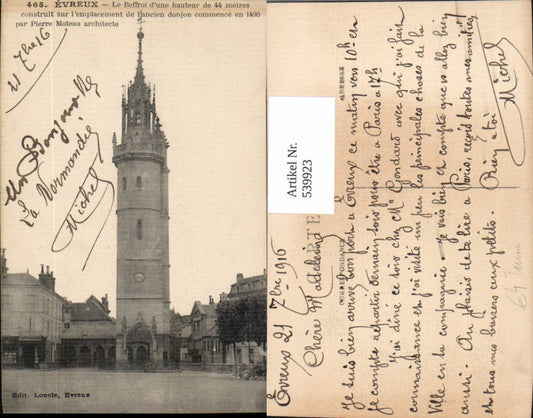 465. ÉVREUX - Le Beffroi d'une hauteur de 44 mètres
construit sur l'emplacement de l'ancien donjon commencé en 1490
par Pierre Moteau architecte
21 7bre 16
Un Bonjour de
La Normandie
Michel
Edit. Loncle, Evreux
Artikel Nr.
539923
ADRESSE
CORRESPONDANCE
Évreux 21 7bre 1916
Chère Madeleine
Je suis bien arrivé bon port à Evreux ce matin vers 10h et
je compte repartir demain soir pour être à Paris à 17h
J'ai diné ce soir chez Mr Gondard avec qui j'ai fait
connaissance et j'ai visité un peu les principales choses de la
Ville en sa compagnie - Je vais bien et compte que vs allez bien
aussi. Au plaisir de te lire à Paris, reçois toutes mes amitiés,
à tous mes bonsens ceux petits. Bien à toi
Michel
64 Turm